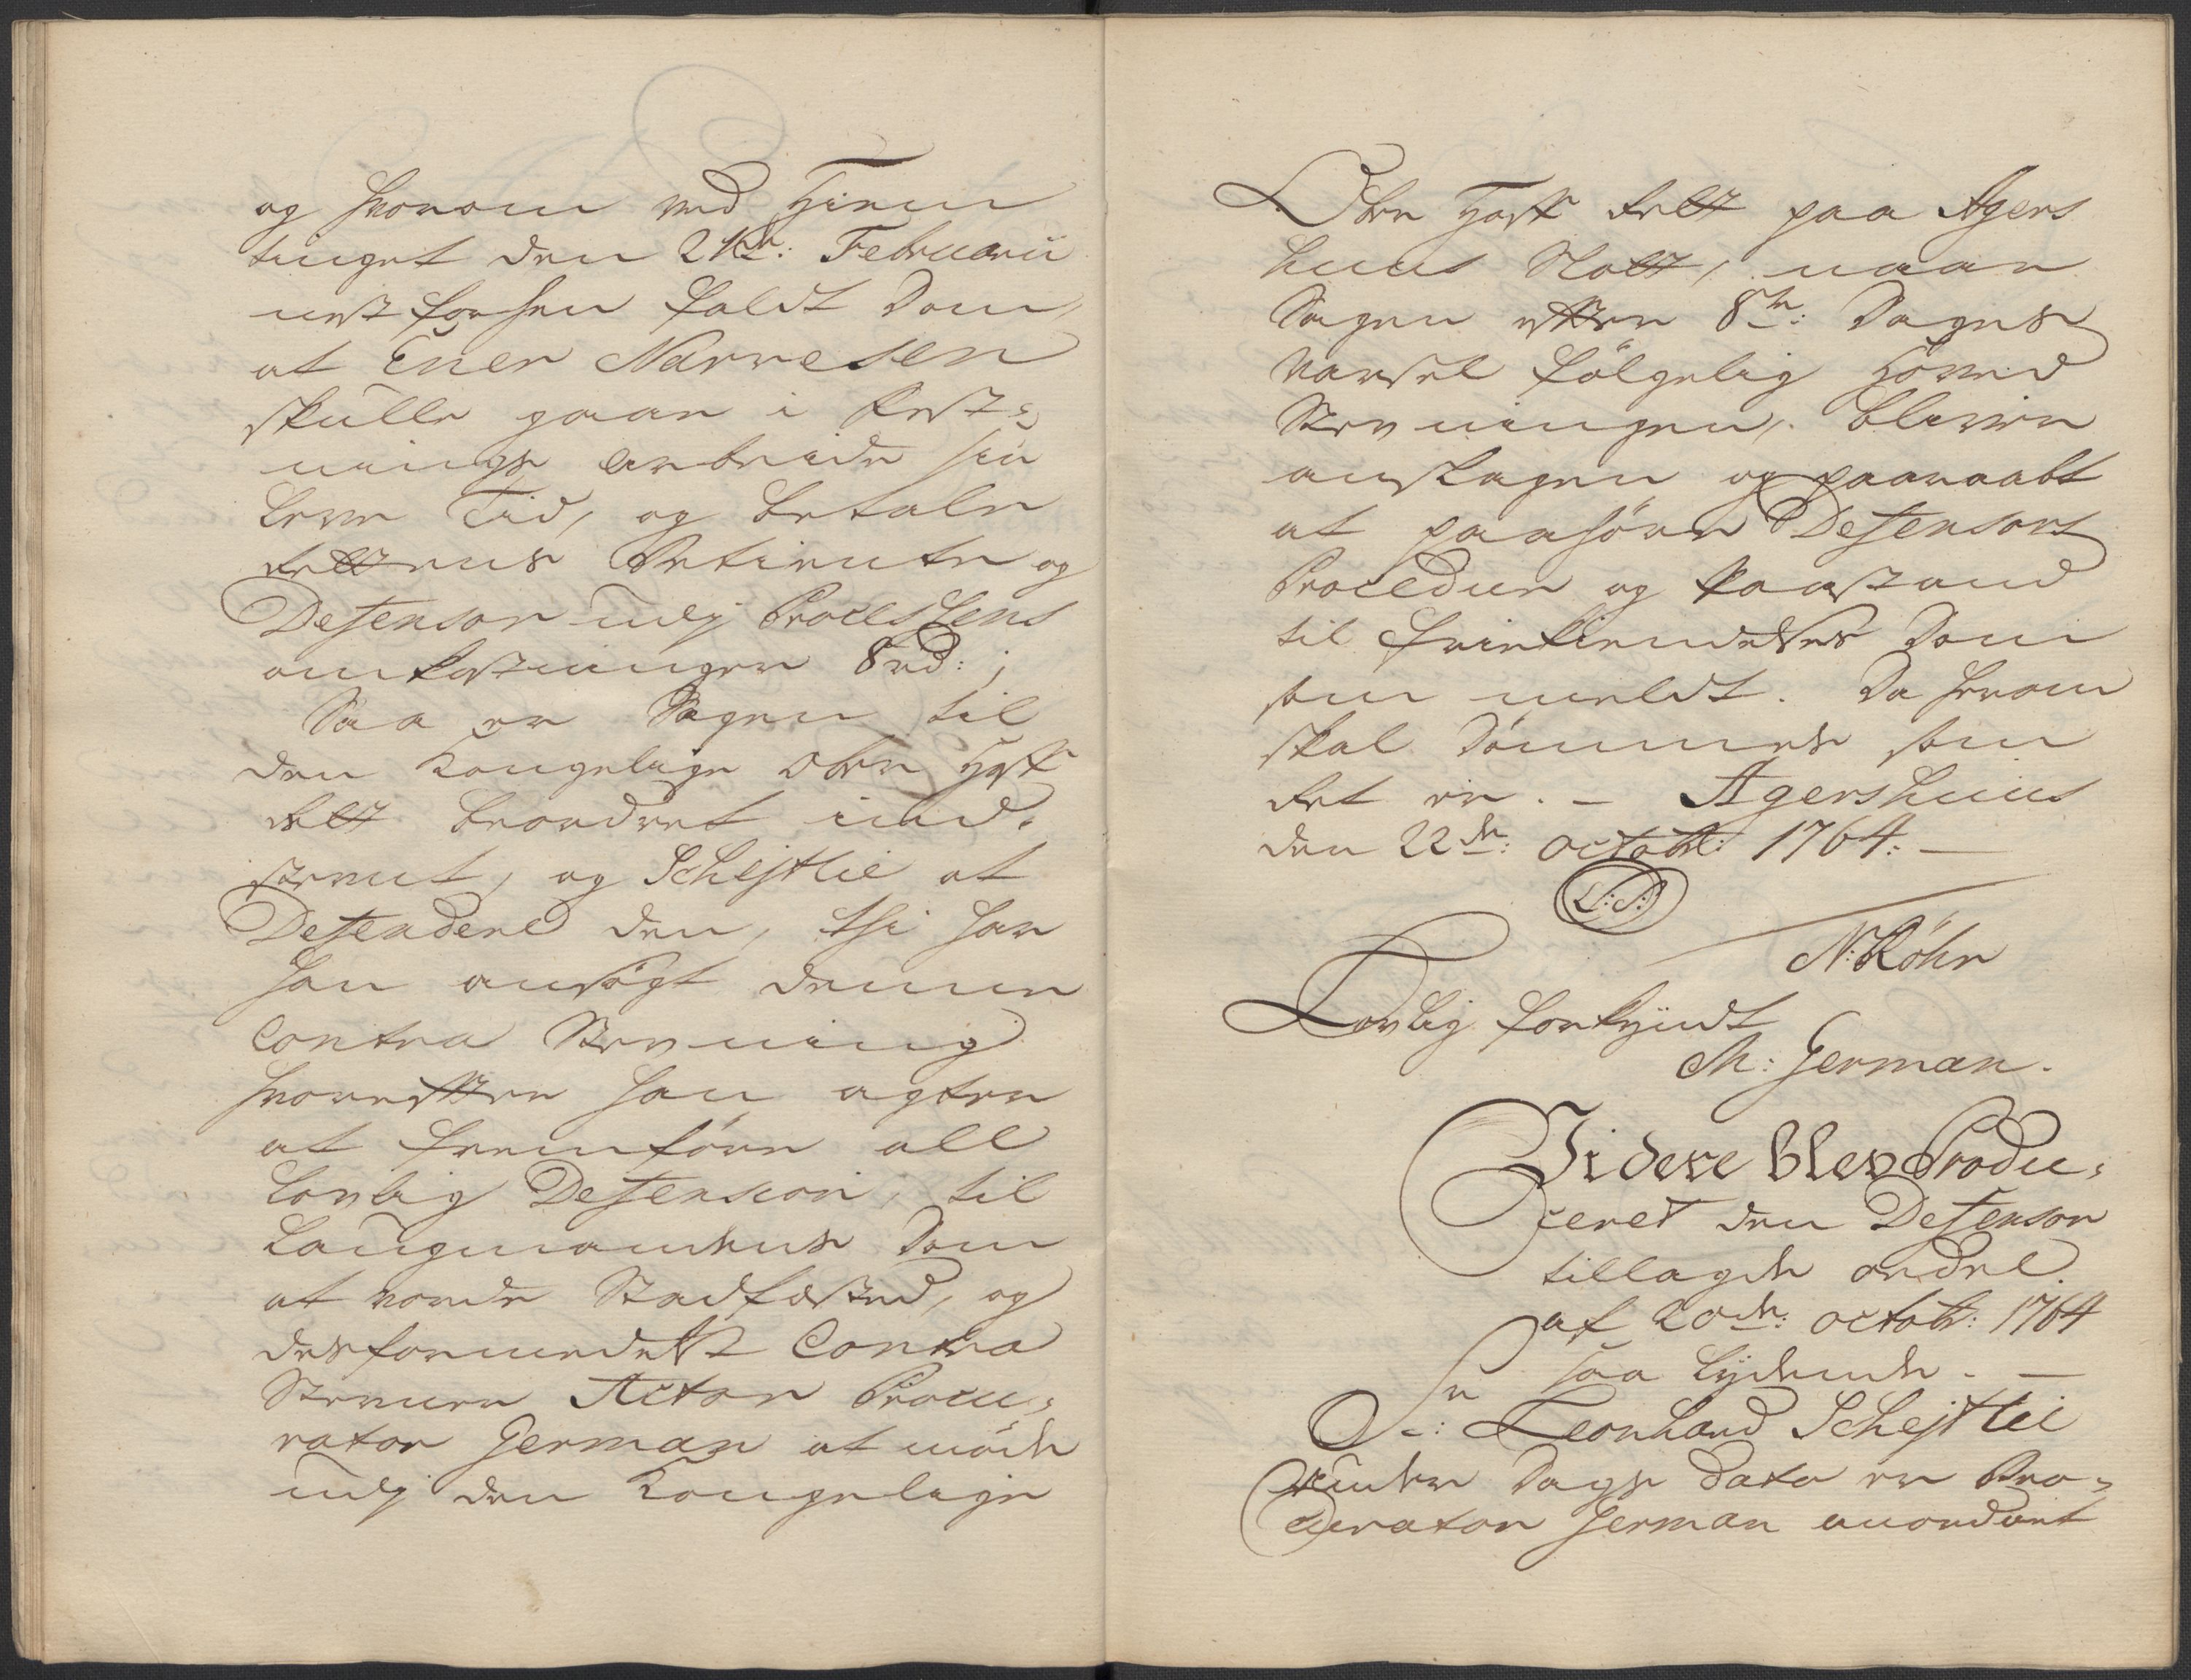 og hvorom ved Hiem
tinget den 21de: Februarii
nest forhen faldt Dom,
at Ener Narvesen
skulle gaae i Fest-
nings Arbeide sin
Leve Tiid, og betale
Rettens Betiente og
Defensor udj Processens
omkostninger 8 rd:;
Saa er Sagen til
den Kongelige Ober Hof
Rett beordret ind-
stevnt, og Schejtlie at
Defendere den, thi har
han ansögt denne
Contra Stevning
hvorefter han agter
at fremföre all
Lovlig Defension, til
Laugmandens Dom
at vorde Stadfæsted, og
desformedelst Contra
Stevner Actor Procu-
rator German at möde
udj den Kongelige
Ober Hoff Rett paa Agers
huus Slott, naar
Sagen efter 8te: Dages
Varsel fölgelig Hoved
Stevningen, bliver
antagen og paaraabt
at paahöre Defensors
Procedur og Paastand
til Friekiendelses Dom
som meldt. Da herom
skal Dömmes som
Ret er. - Agershuus
den 22de: octobr: 1764: -
L:S:
N: Röhr
Lovlig forkyndt
M: German.
Videre blev Produ-
ceret den Defensor
tillagde ordre
af 20de: octobr: 1764
saa Lydende. -
Sr: Leonhard Schejtlie
Under Dags Dato er Pro-
curator German anordnet